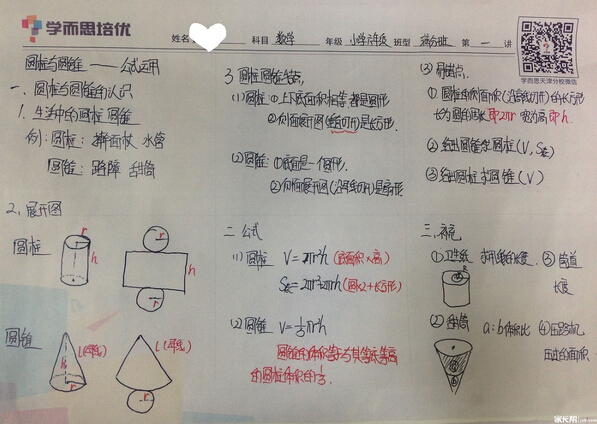 学而思培优
姓名: 科目 数学 年级 小学六年级 班型 满分班 第 一 讲
学而思天津分校微信
圆柱与圆锥 —— 公式运用
一、圆柱与圆锥的认识
1. 生活中的圆柱 圆锥
例: 圆柱: 擀面杖 水管
圆锥: 路障 甜筒
2、展开图
圆柱
r
h
r
h
r
圆锥
h
r
l(母线)
l(母线)
r
3 圆柱圆锥特点:
(1) 圆柱 ① 上下底面积相等 都是圆形
② 侧面展开图(沿高线切开)是长方形.
(2) 圆锥: ①底面是一个圆形.
② 侧面展开图(沿母线切开)是扇形
二 公式
(1) 圆柱 V=πr²h (底面积×高)
S表=2πr²+2πrh (圆×2+长方形)
(2) 圆锥 V=⅓πr²h
圆锥的体积等于与其等底等高
的圆柱体积的⅓
(3) 易错点.
① 圆柱的侧面积(沿高线切开)的长方形
长为圆的周长即2πr 宽为高即h.
② 给出圆锥求圆柱(V, S表)
③ 给出圆柱求圆锥(V)
三、补充
① 卫生纸 求用纸的长度. ③ 管道
长度
② 甜筒 a:b体积比 ④ 压路机
压过的面积
a
b
家长帮 jzb.com